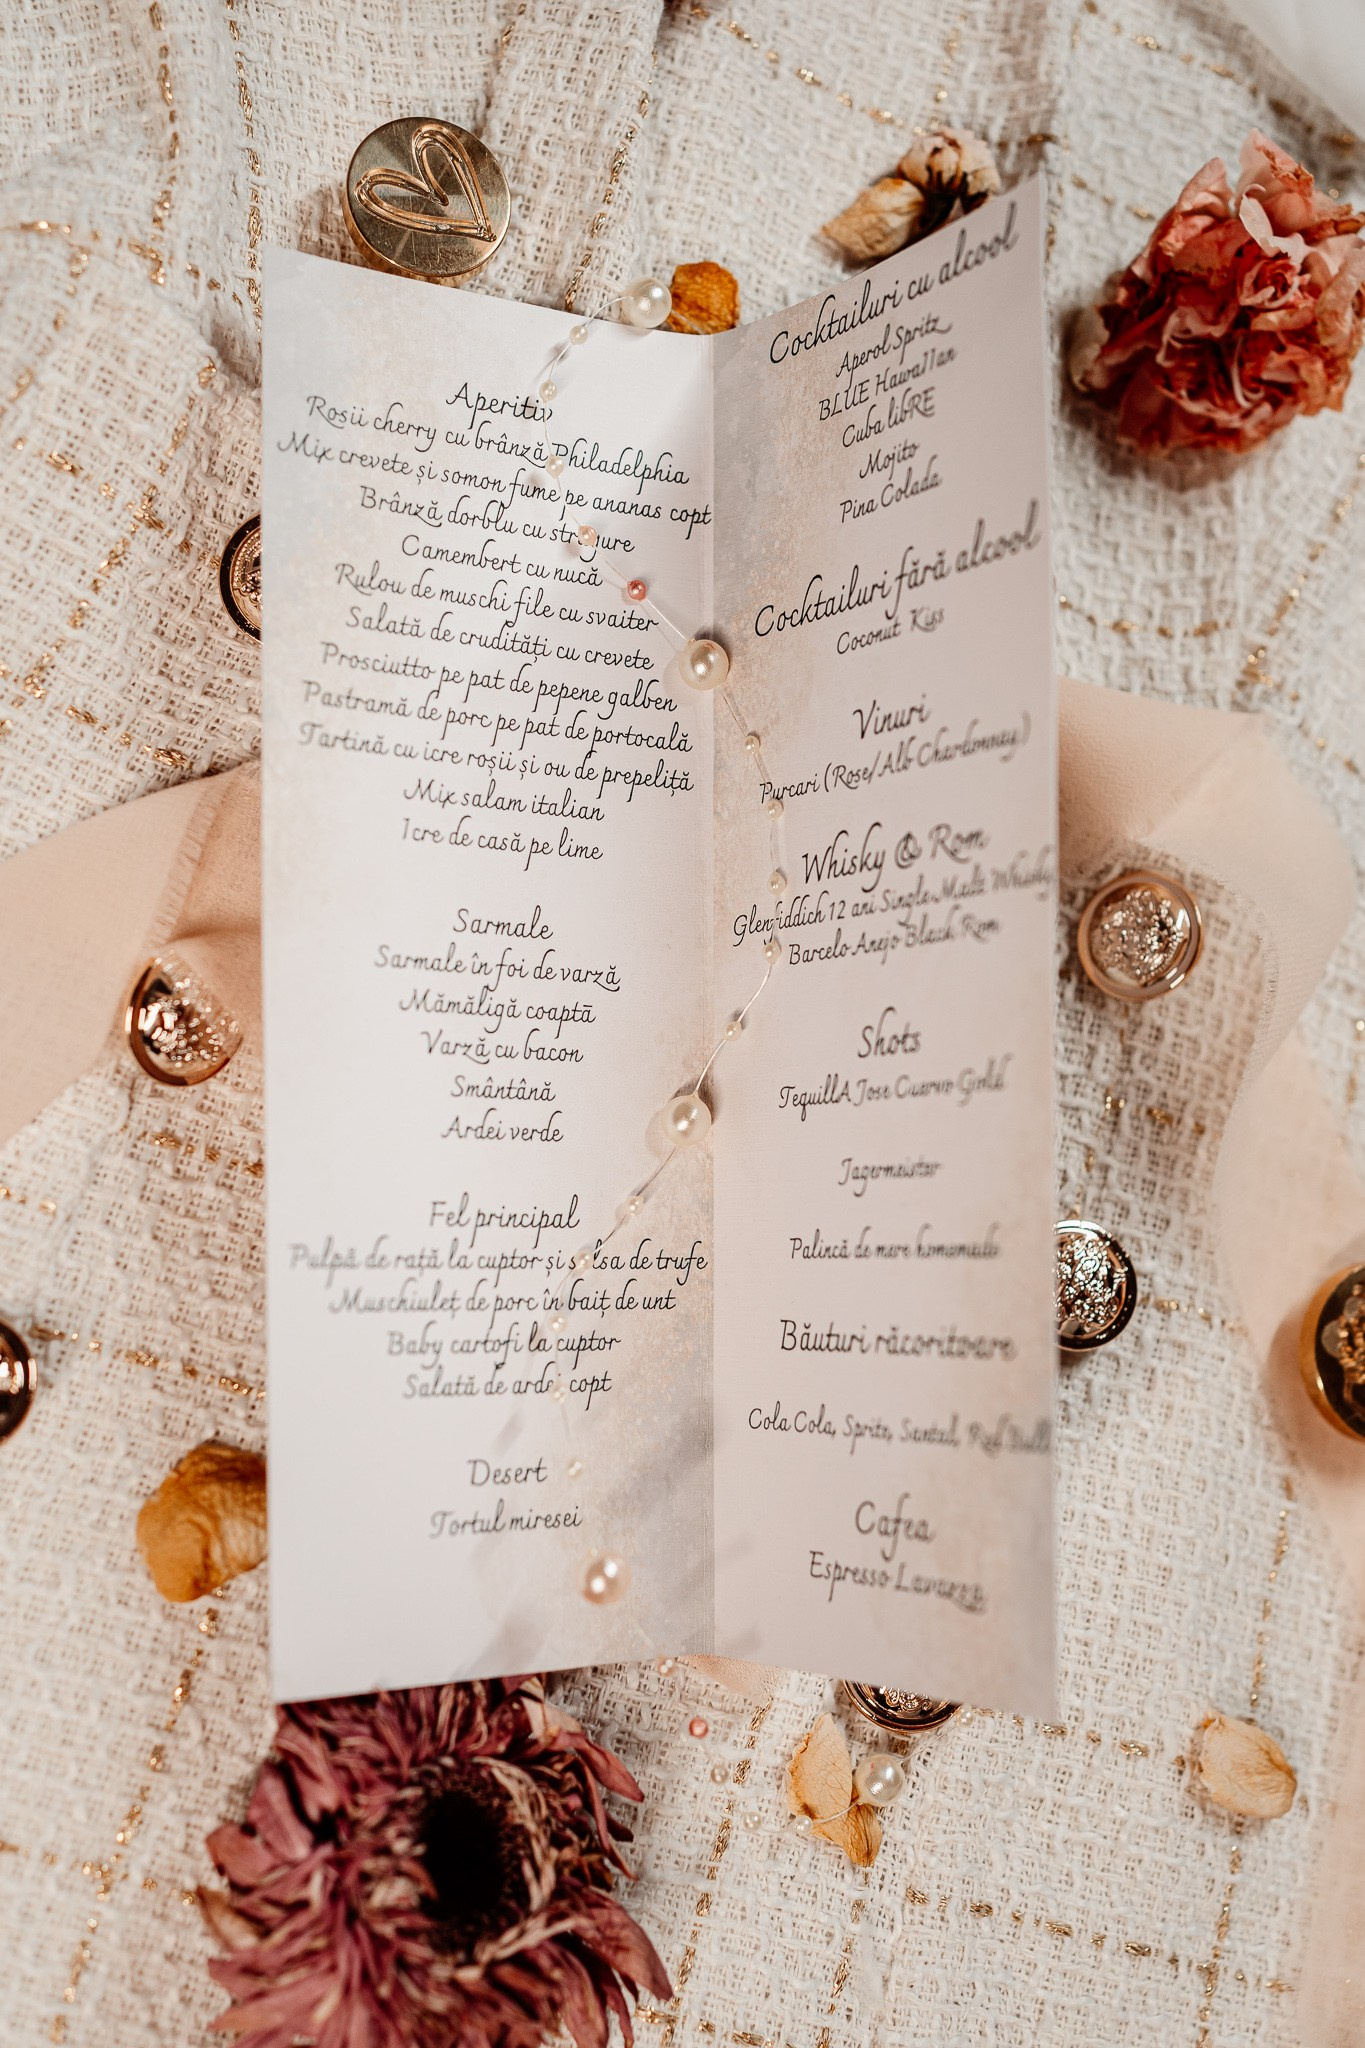 Aperitiv
Roșii cherry cu brânză Philadelphia
Mix crevete și somon fume pe ananas copt
Brânză dorblu cu strugure
Camembert cu nucă
Rulou de muschi file cu svaiter
Salată de crudități cu crevete
Prosciutto pe pat de pepene galben
Pastramă de porc pe pat de portocală
Tartină cu icre roșii și ou de prepeliță
Mix salam italian
Icre de casă pe lime
Sarmale
Sarmale în foi de varză
Mămăligă coaptă
Varză cu bacon
Smântână
Ardei verde
Fel principal
Pulpă de rață la cuptor și salsa de trufe
Muschiuleț de porc în baiț de unt
Baby cartofi la cuptor
Salată de ardei copt
Desert
Tortul miresei
Cocktailuri cu alcool
Aperol Spritz
BLUE HawaIIan
Cuba libRE
Mojito
Pina Colada
Cocktailuri fără alcool
Coconut Kiss
Vinuri
Purcari (Rose/Alb Chardonnay)
Whisky & Rom
Glenfiddich 12 ani Single Malt Whisky
Barcelo Anejo Black Rom
Shots
TequillA Jose Cuervo Gold
Jagermeister
Palincă de mere homemade
Băuturi răcoritoare
Cola Cola, Sprite, Santal, Red Bull
Cafea
Espresso Lavazza